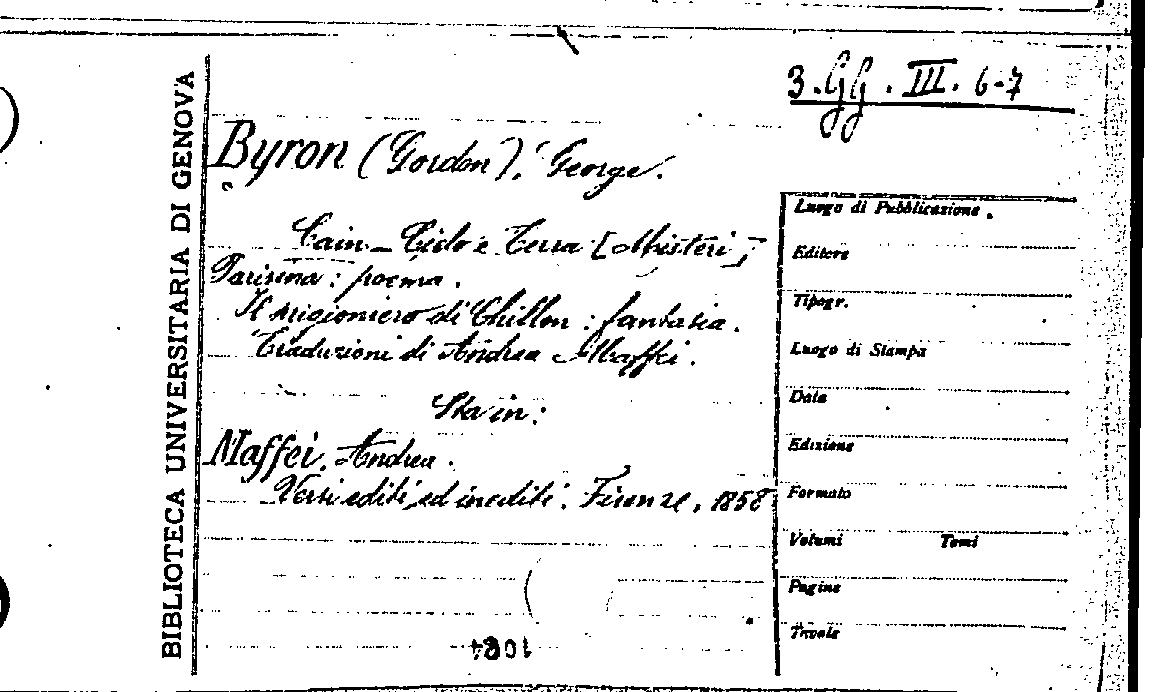 3.GG.III.6-7
BIBLIOTECA UNIVERSITARIA DI GENOVA
Byron (Gordon), George.
Cain - Cielo e Terra [Misteri],
Parisina: poema.
Il prigioniero di Chillon: fantasia.
Traduzioni di Andrea Maffei.
Sta in:
Maffei, Andrea.
Versi editi ed inediti. Firenze, 1858
Luogo di Pubblicazione.
Editore
Tipogr.
Luogo di Stampa
Data
Edizione
Formato
Volumi Tomi
Pagine
Tavole